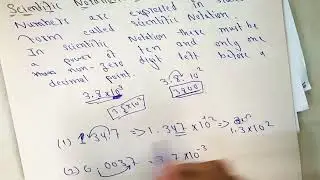 Scientific Notation
Numbers are expressed in
form called scientific Notation.
In scientific Notation there must be
a power of ten and only one
non-zero digit left before a
decimal point.
3.8×10³ 3.8×10²
3800
(1) 134.7 ⇒ 1.347×10⁺² ⇒
1.3×10²
(2) 0.0037 = 3.7×10⁻³